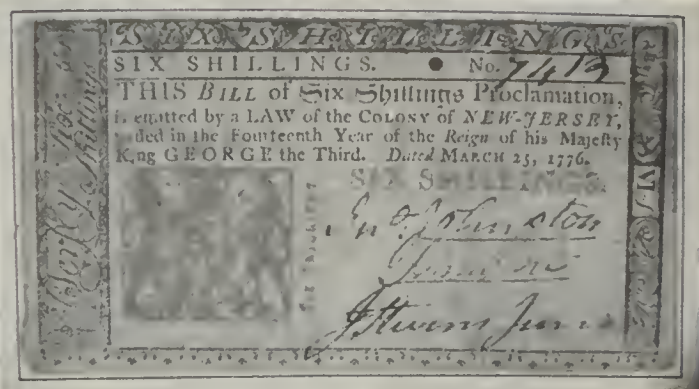 SIX SHILLINGS
SIX SHILLINGS. No. 7413
THIS BILL of Six Shillings Proclamation,
is emitted by a LAW of the COLONY of NEW-JERSEY,
in the Fourteenth Year of the Reign of his Majesty
King GEORGE the Third. Dated MARCH 25, 1776.
SIX SHILLINGS.
Johnston
Stevens Jun
Shillings